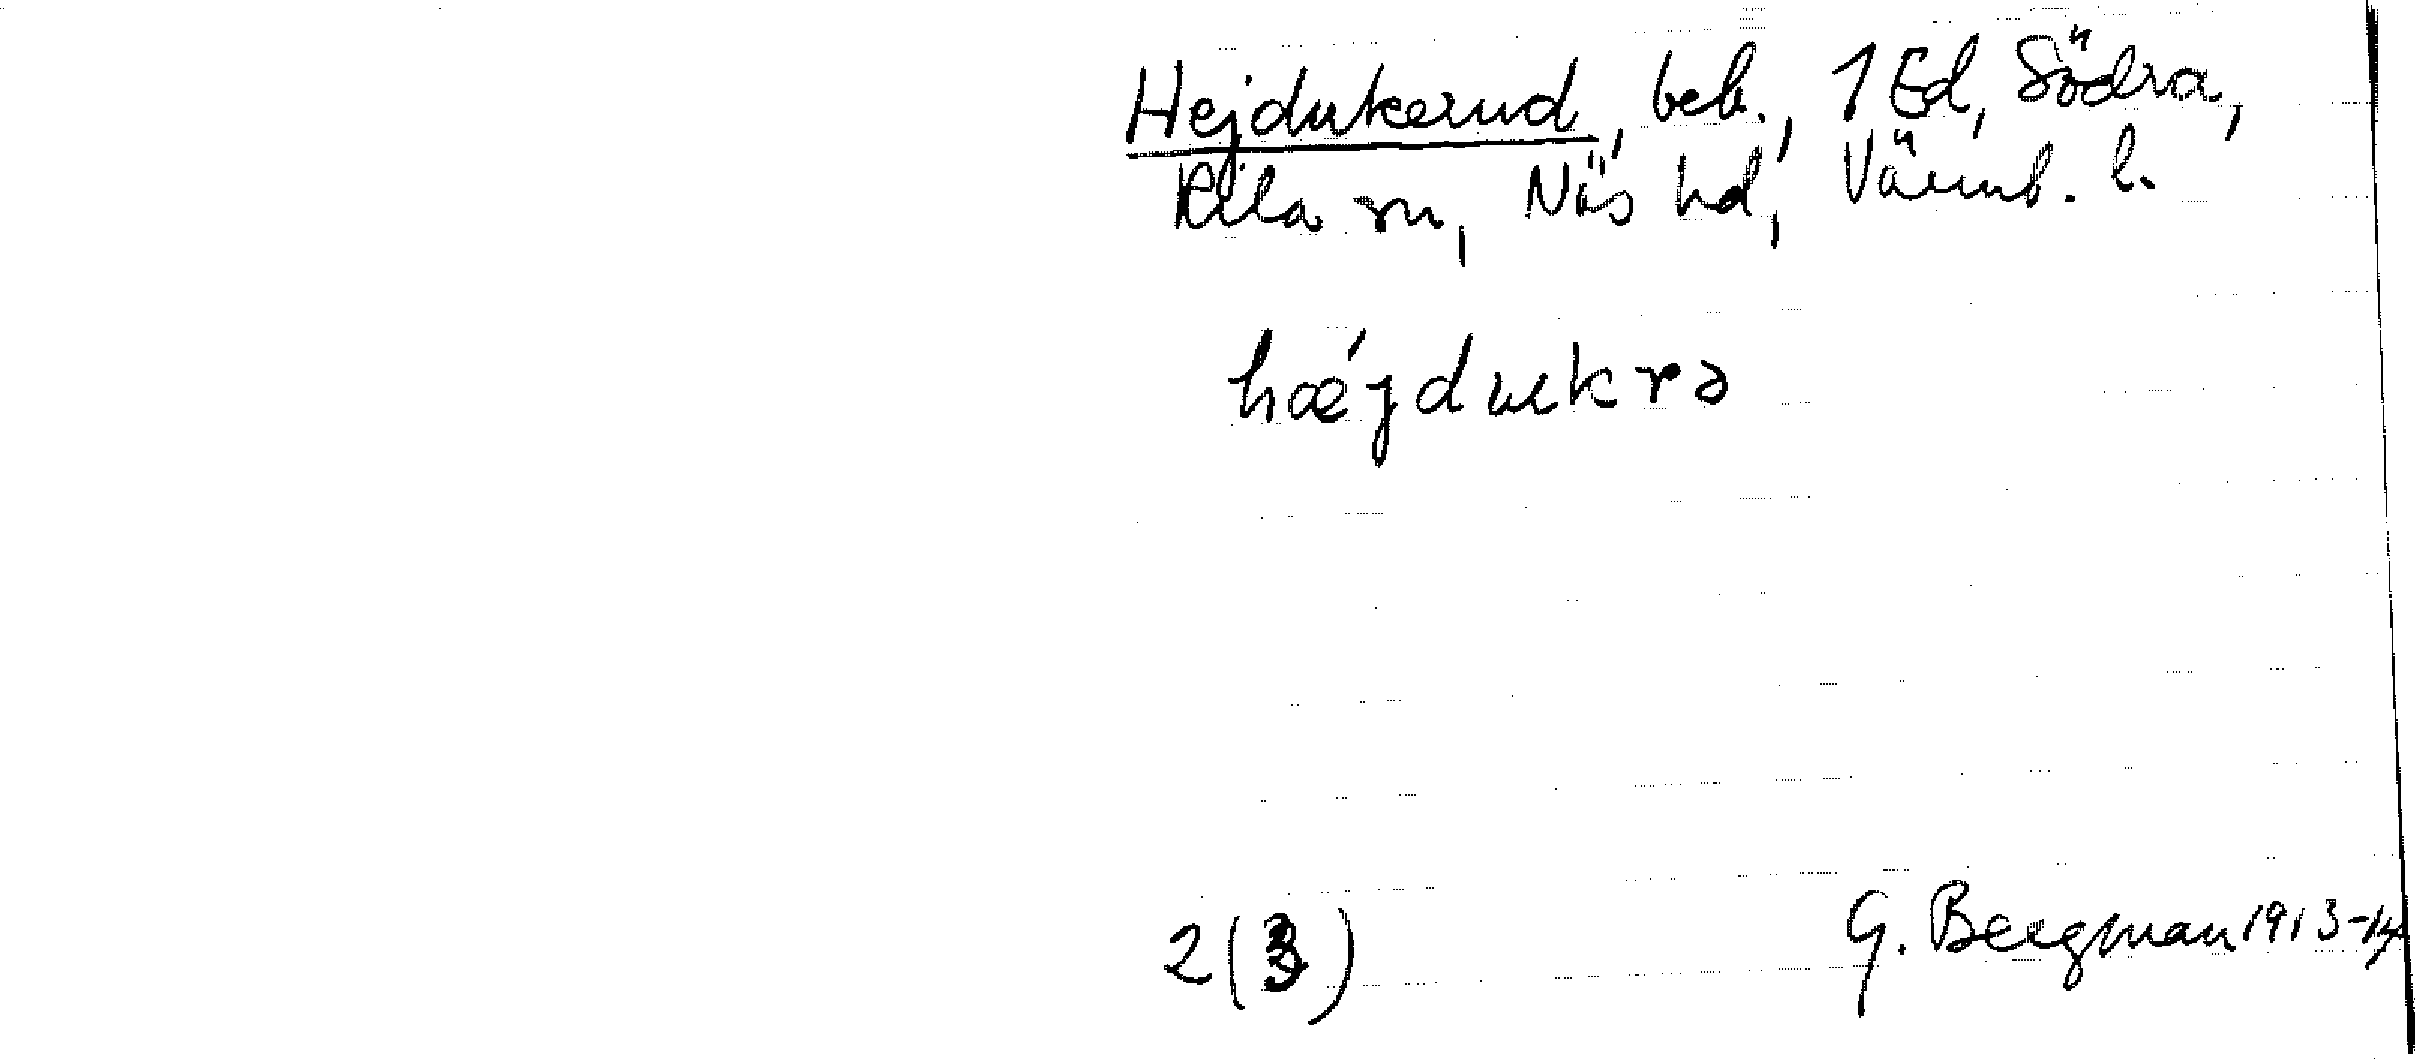 Hejdukerud, beb., 1 Ed, Södra,
Kila sn, Näs hd, Värml. l.
hǽjdukrə
2(3)
G. Bergman 1913-14